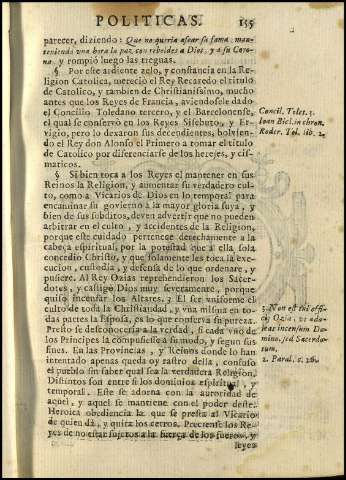 POLITICAS. 155
parecer, diziendo: Que no queria afear su fama, man-
teniendo una hora la paz con rebeldes a Dios, y a su Coro-
na. y rompiò luego las treguas.
§ Por este ardiente zelo, y constancia en la Re-
ligion Catolica, mereciò el Rey Recaredo el titulo
de Catolico, y tambien de Christianissimo, mucho
antes que los Reyes de Francia, aviendosele dado
el Concilio Toledano tercero, y el Barcelonense,
el qual se conservò en los Reyes Sisebuto, y Er-
vigio, pero lo dexaron sus decendientes, bolvien-
do el Rey don Alonso el Primero a tomar el titulo
de Catolico por diferenciarse de los herejes, y cis-
maticos.
Concil. Tolet. 3.
Ioan Bicl. in chron.
Roder. Tol. lib. 2.
§ Si bien toca a los Reyes el mantener en sus
Reinos la Religion, y aumentar su verdadero cul-
to, como a Vicarios de Dios en lo temporal para
encaminar su govierno a la mayor gloria suya, y
bien de sus subditos, deven advertir que no pueden
arbitrar en el culto, y accidentes de la Religion,
porque este cuidado pertenece derechamente a la
cabeça espiritual, por la potestad que a ella sola
concediò Christo, y que solamente les toca la exe-
cucion, custodia, y defensa de lo que ordenare, y
pusiere. Al Rey Ozias reprehendieron los Sacer-
dotes, y castigò Dios muy severamente, porque
quiso incensar los Altares. 3 El ser uniforme el
culto de toda la Christiandad, y una misma en to-
das partes la Esposa, es lo que conserva su pureza.
Presto se desconoceria a la verdad, si cada uno de
los Principes la compusiesse a su modo, y segun sus
fines. En las Provincias, y Reinos donde lo han
intentado apenas queda oy rastro della, confuso
el pueblo sin saber qual sea la verdadera Religion.
Distintos son entre si los dominios espiritual, y
temporal. Este se adorna con la autoridad de
aquel, y aquel se mantiene con el poder deste.
Heroica obediencia la que se presta al Vicario
de quien dà, y quita los cetros. Preciense los Re-
yes de no estar sujetos a la fuerça de los fueros, y
leyes
3. Non est tui offi-
cij Ozia, ut ado-
leas incensum Do-
mino, sed Sacerdo-
tum.
2. Paral. c. 26.